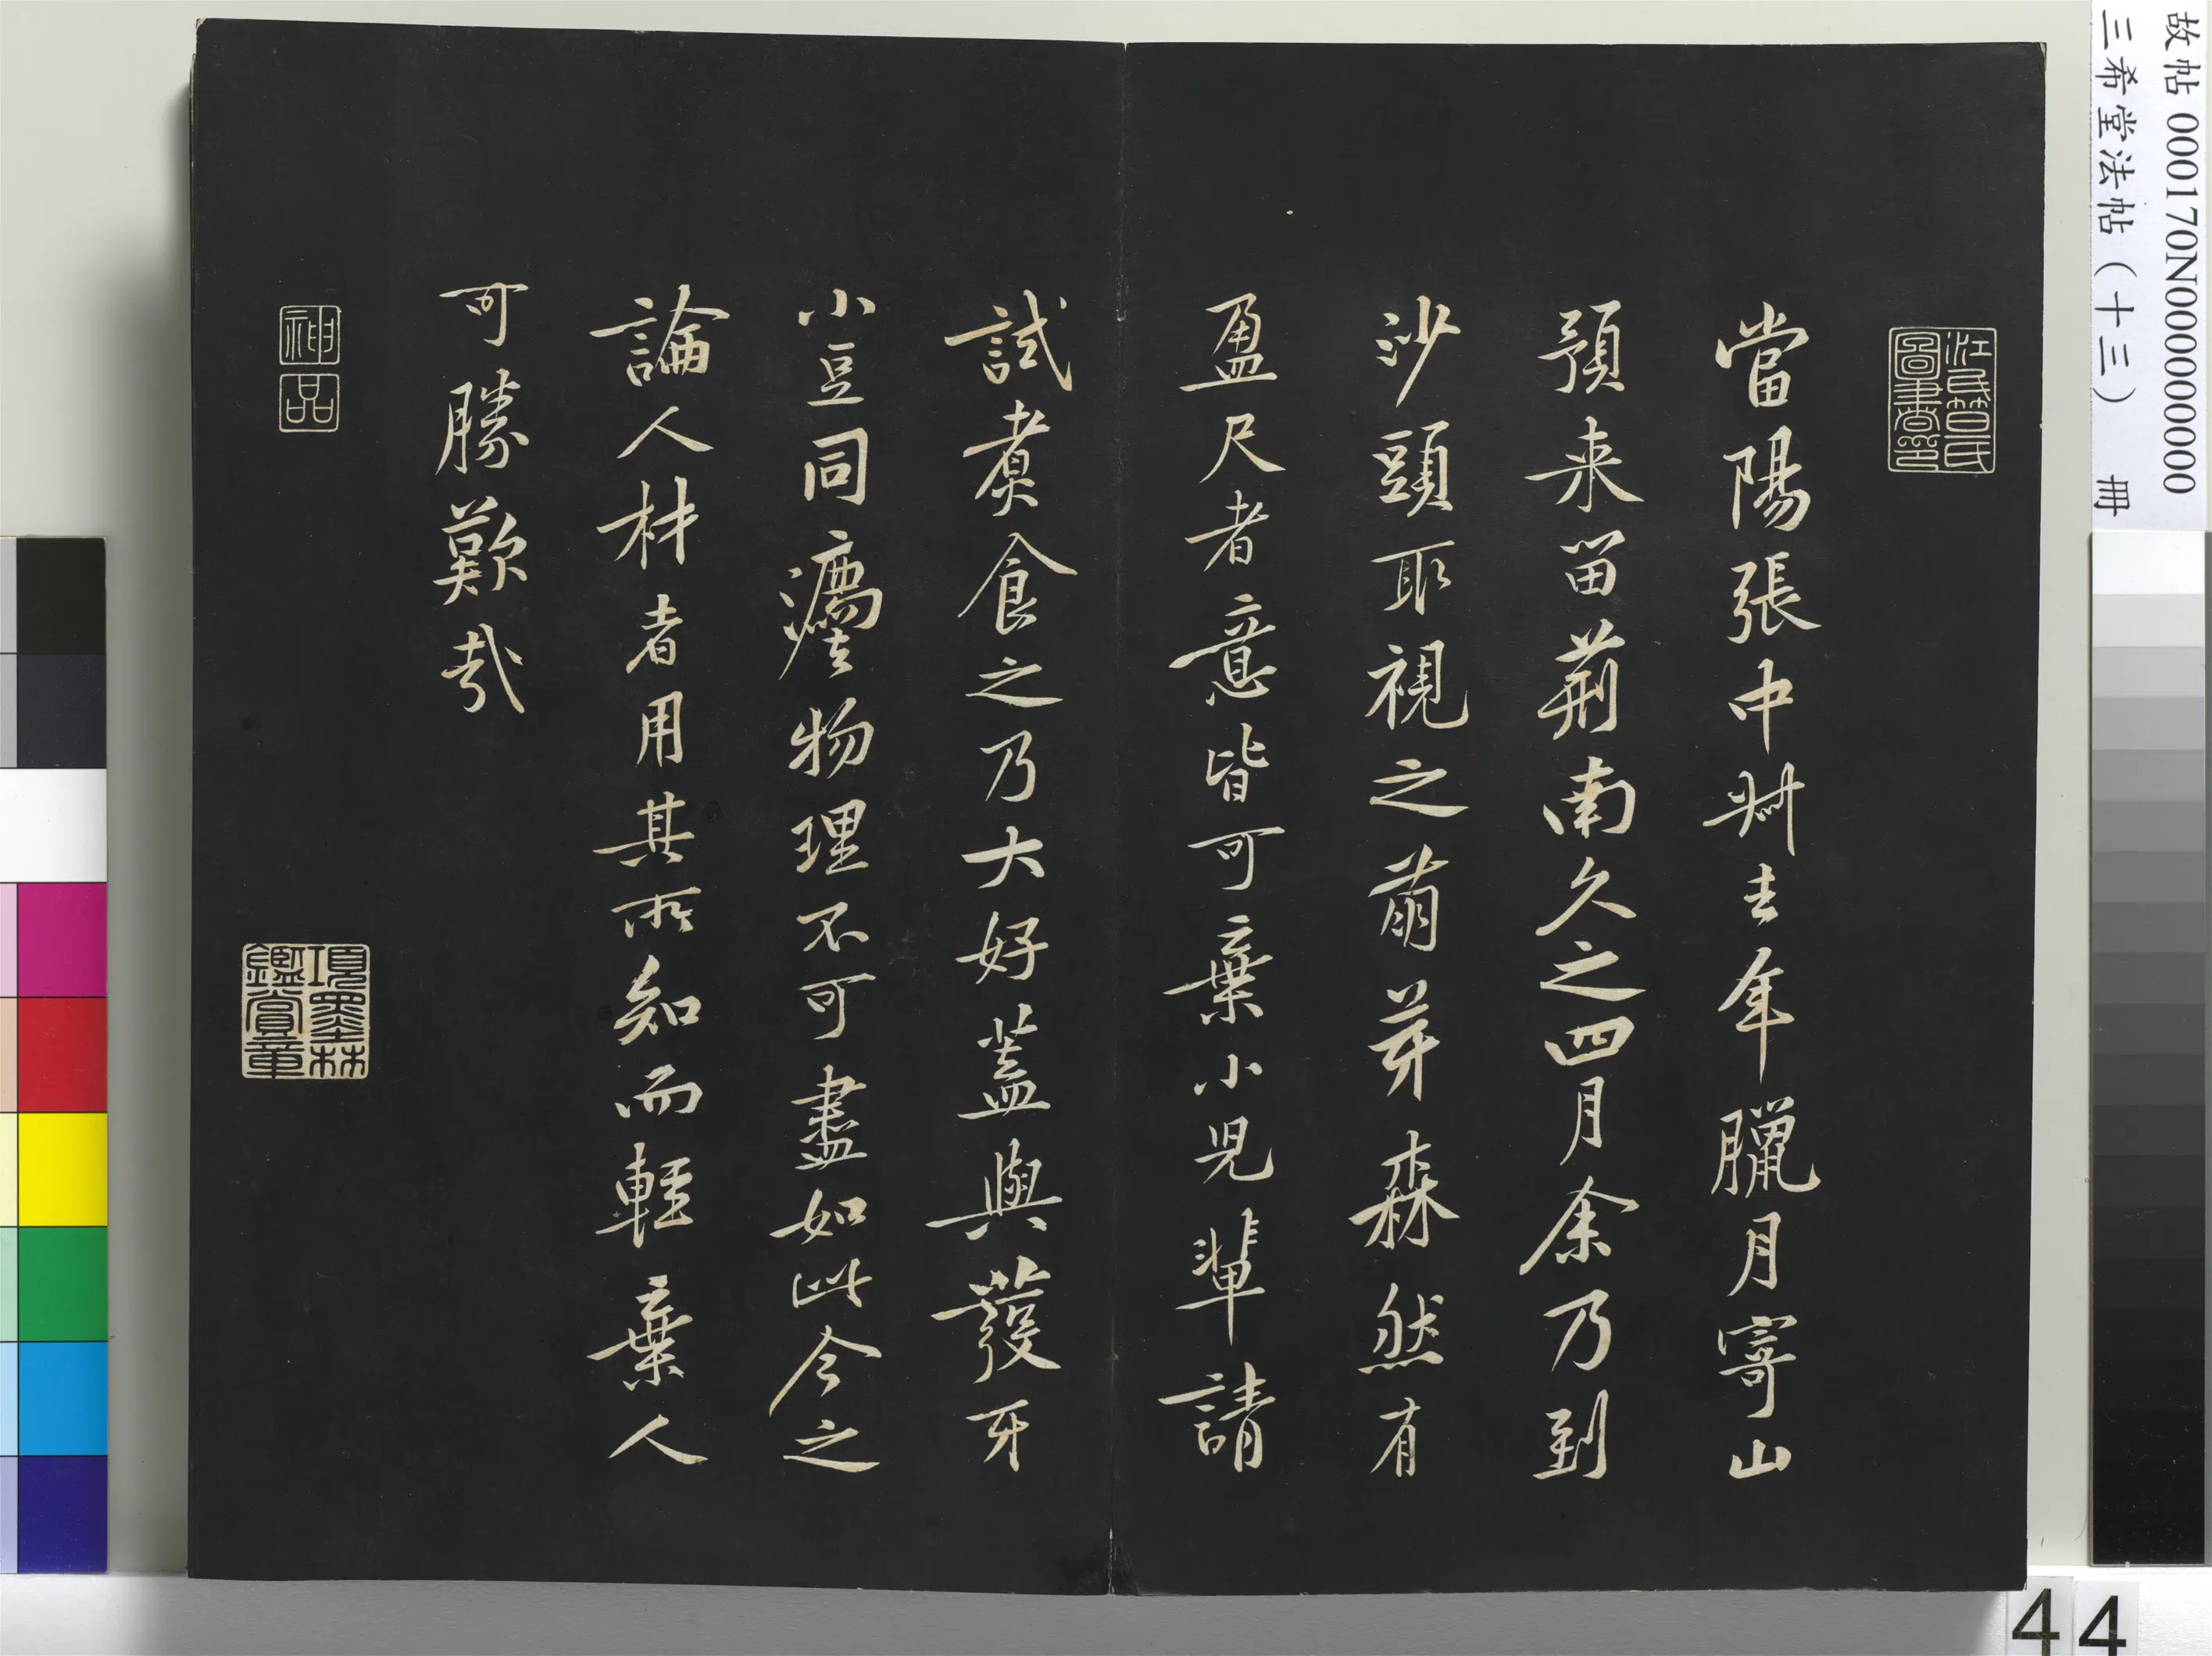 故帖 000170N000000000
三希堂法帖（十三） 冊
江上笪氏圖書印
當陽張中叔去年臘月寄山
預来留荊南久之四月余乃到
沙頭取視之萠芽森然有
盈尺者意皆可棄小兒輩請
試煮食之乃大好蓋與蕟牙
小豆同灋物理不可盡如此今之
論人材者用其所知而輕棄人
可勝歎哉
神品
項墨林鑑賞章
44